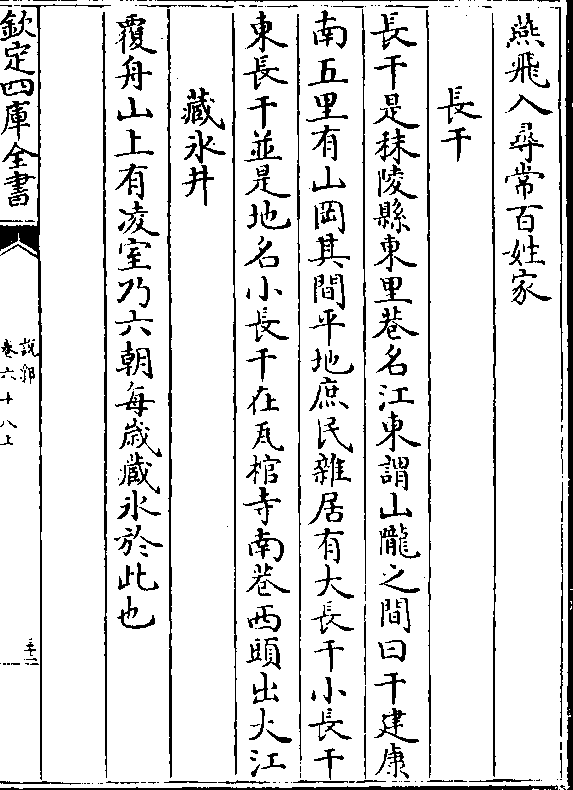 燕飛入尋常百姓家
長干
長干是秣陵縣東里巷名江東謂山隴之間曰干建康
南五里有山岡其間平地庶民雜居有大長干小長干
東長干並是地名小長干在瓦棺寺南巷西頭出大江
藏氷井
覆舟山上有凌室乃六朝每歲藏氷於此也
欽定四庫全書
說郛
卷六十八上